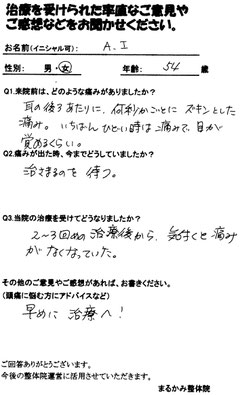 治療を受けられた率直なご意見や
ご感想などをお聞かせください。
お名前(イニシャル可): A.I
性別: 男・女 年齢: 54 歳
Q1.来院前は、どのような痛みがありましたか?
耳の後ろあたりに、何秒かごとにズキンとした
痛み。いちばんひどい時は痛みで、目が
覚めるくらい。
Q2.痛みが出た時、今までどうしていましたか?
治まるのを待つ。
Q3.当院の治療を受けてどうなりましたか?
2〜3回めの治療後から、気付くと痛み
がなくなっていた。
その他のご意見やご感想があれば、お書きください。
(頭痛に悩む方にアドバイスなど)
早めに治療へ!
ご回答ありがとうございます。
今後の整体院運営に活用させていただきます。
まるかみ整体院